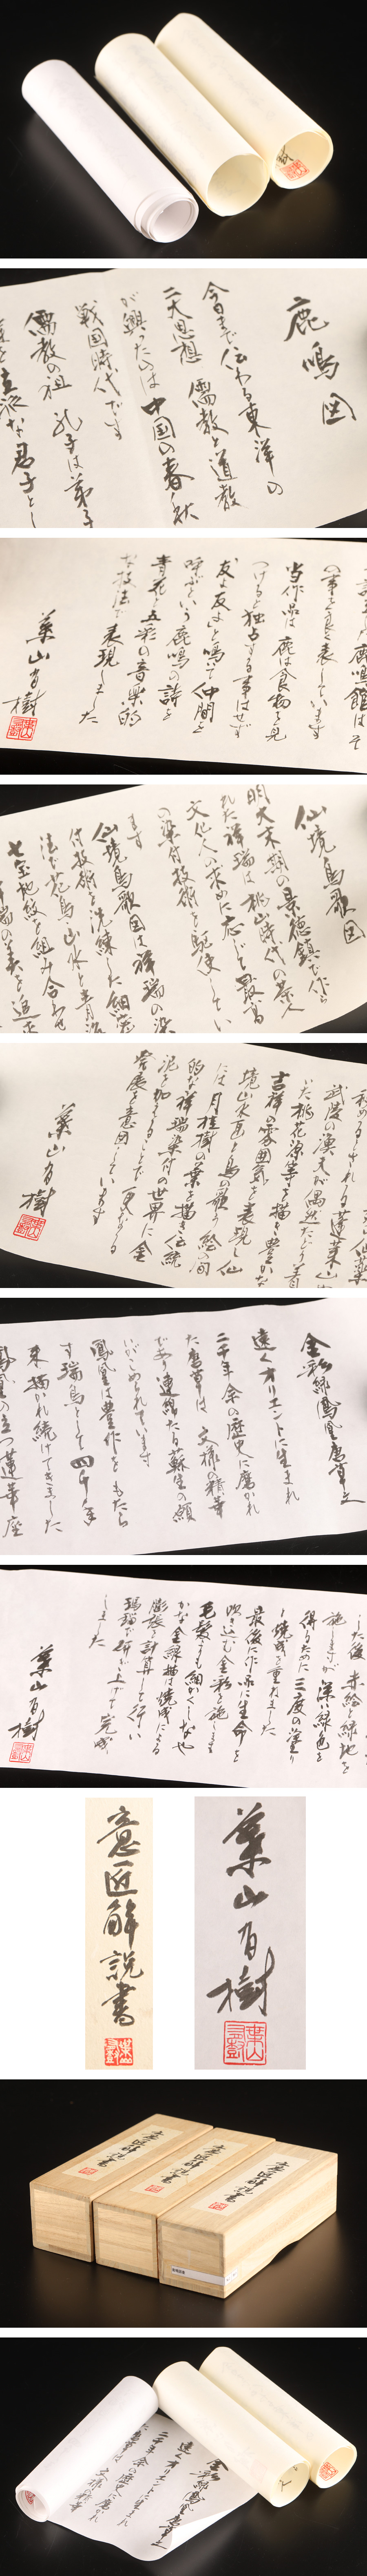 鹿鳴図
今日まで伝わる東洋の
二大思想 儒教と道教
が興ったのは中国の春秋
戦国時代です
儒教の祖 孔子は弟子
立派な君子とし
した鹿鳴館はそ
の事を良く表しています
当作品は鹿は食物を見
つけると独占する事はせず
友よ友よと鳴いて仲間を
呼ぶという鹿鳴の詩を
青花と五彩の音楽的
な技法で表現しました
葉山有樹
仙境鳥歌図
明代末期の景徳鎮で作ら
れた祥瑞は桃山時代の茶人
文化人の求めに応じて最高
の染付技術を駆使してい
ます
仙境鳥歌図は祥瑞の染
付技術を洗練した細密
法で花鳥山水と青海波
七宝地紋を組み合わせ
祥瑞の美を追
められる蓬莱山
武陵の漁夫が偶然たどり着
いた桃花源等を描き豊かな
吉祥の雰囲気を表現し仙
境山水画と鳥の歌う絵の間
には月桂樹の葉を描き伝統
的な祥瑞染付の世界に金
泥を加えることで更なる
発展を意図しています
葉山有樹
金彩緑鳳凰唐草文
遠くオリエントに生まれ
二千年余の歴史に磨かれ
た唐草は文様の精華
であり連綿たる蘇生の願
いがこめられています
鳳凰は豊作をもたら
す瑞鳥として四千年
来描かれ続けてきました
鳳凰の立つ蓮華座
した後 赤絵と緑地を
施しますが深い緑色を
得るために三度の塗り
と焼成を重ねました
最後に作品に生命を
吹き込む金彩を施します
毛髪よりも細かくしなや
かな金線描は焼成による
膨張を計算して行い
瑪瑙で研き上げて完成
しました
葉山有樹
意匠解説書
葉山有樹
意匠解説書
意匠解説書
意匠解説書
金彩緑鳳凰唐草文
遠くオリエントに生まれ
二千年余の歴史に磨かれ
た唐草は文様の精華